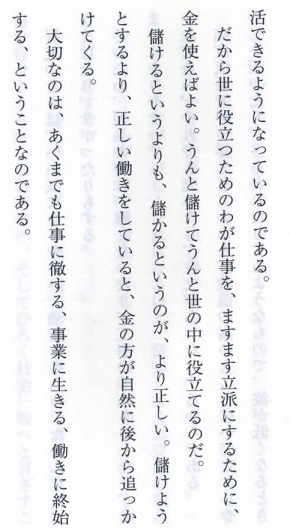 活できるようになっているのである。
だから世に役立つためのわが仕事を、ますます立派にするために、
金を使えばよい。うんと儲けてうんと世の中に役立てるのだ。
儲けるというよりも、儲かるというのが、より正しい。儲けよう
とするより、正しい働きをしていると、金の方が自然に後から追っか
けてくる。
大切なのは、あくまでも仕事に徹する、事業に生きる、働きに終始
する、ということなのである。